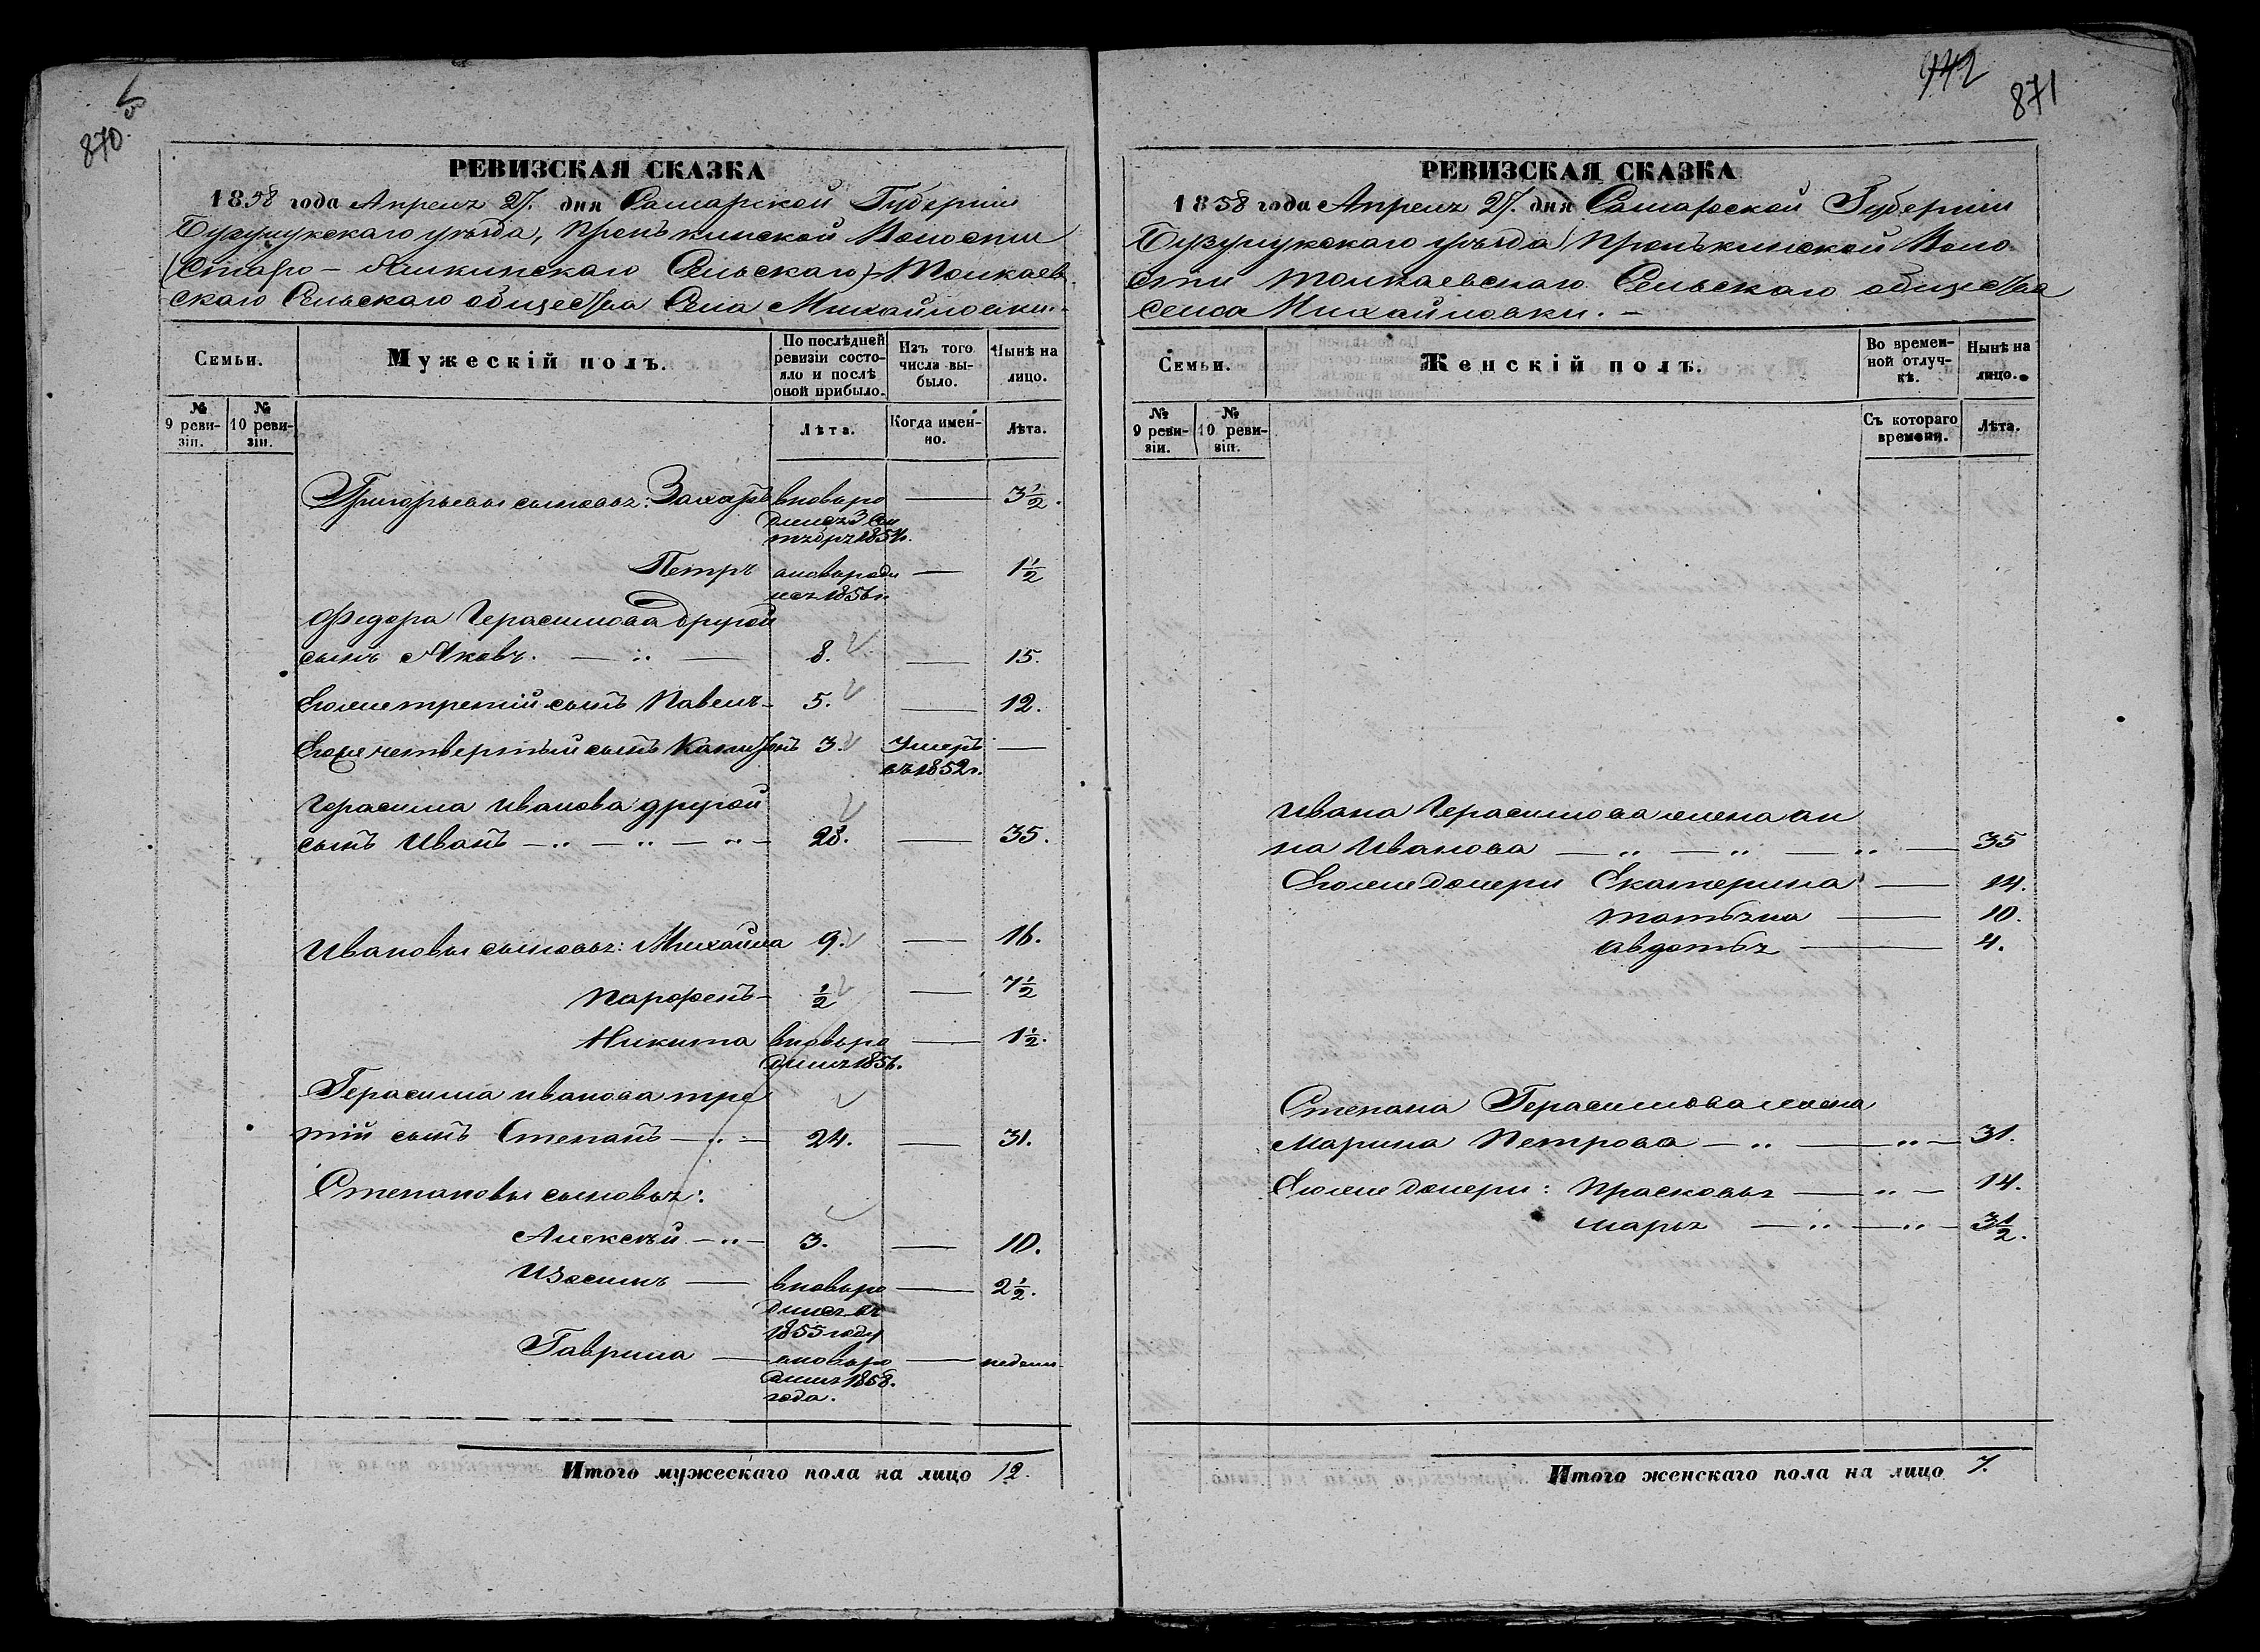 870
942
871
РЕВИЗСКАЯ СКАЗКА
1858 года Апреля 27. дня Самарской Губернiи
Бузулукскаго уѣзда, Пронькинской Волости
(Старо-Ашкинскаго Сельскаго) Толкаев
скаго Сельскаго общества Села Михайловки.
Семьи.
Мужескiй полъ.
По послѣдней ревизiи состояло и послѣ оной прибыло.
Изъ того числа выбыло.
Нынѣ на лицо.
№ 9 ревизiи.
№ 10 ревизiи.
Лѣта.
Когда именно.
Лѣта.
Григорьевы сыновья: Захаръ вновь ро — 3½.
дился 3 Сен
тября 1854.
Петръ вновь роди — 1½
лся 1856 г.
Федора Герасимова другой
сынъ Яковъ. 8. — 15.
Его же третiй сынъ Павелъ 5. — 12.
Его же четвертый сынъ 3. Умеръ —
въ 1852 г.
Герасима Иванова другой
сынъ Иванъ 28. — 35.
Ивановы сыновья: Михайла 9. — 16.
Парфенъ ½ — 7½
Никита вновь ро — 1½.
дился 1856.
Герасима Иванова тре
тiй сынъ Степанъ 24. — 31.
Степановы сыновья:
Алексѣй 3. — 10.
Изосимъ — вновь ро — 2½.
дился въ
1855 году
Гаврила — вновь ро — недели
дился 1858.
года.
Итого мужескаго пола на лицо 12.
РЕВИЗСКАЯ СКАЗКА
1858 года Апреля 27. дня Самарской Губернiи
Бузулукскаго уѣзда Пронькинской Воло
сти Толкаевскаго Сельскаго общества
Села Михайловки. —
Семьи.
Женскiй полъ.
Во временной отлучкѣ.
Нынѣ на лицо.
№ 9 ревизiи.
№ 10 ревизiи.
Съ котораго времени.
Лѣта.
Ивана Герасимова жена Ан
на Иванова 35
Его же дочери Екатерина — 14.
Татьяна — 10.
Авдотья — 4.
Степана Герасимова жена
Марина Петрова 31.
Его же дочери: Прасковья 14.
Марья 3½.
Итого женскаго пола на лицо 7.